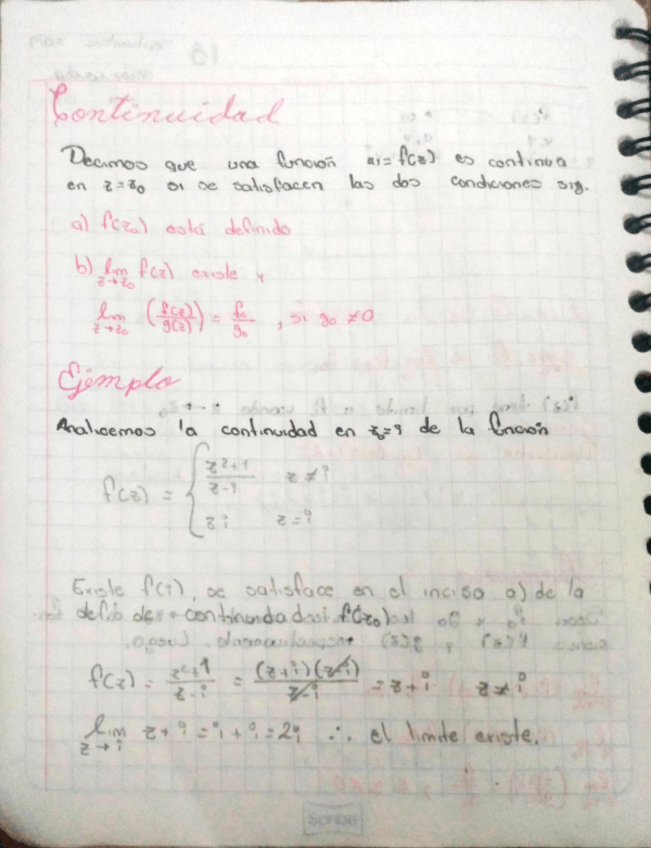 Continuidad
Decimos que una función w=f(z) es continua
en z=z₀ si se satisfacen las dos condiciones sig.
a) f(z₀) está definido
b) lim z→z₀ f(z) existe y
lim z→z₀ (f(z)/g(z)) = f₀/g₀ , si g₀ ≠0
Ejemplo
Analicemos la continuidad en z₀=i de la función
f(z) = { z²+1/z-i z≠i
3i z=i
Existe f(i), se satisface en el inciso a) de la
def. de continuidad f(z₀)
f(z) = z²+1/z-i = (z+i)(z-i)/z-i = z+i z≠i
lim z→i z+i = i+i = 2i ∴ el limite existe.
Scribe